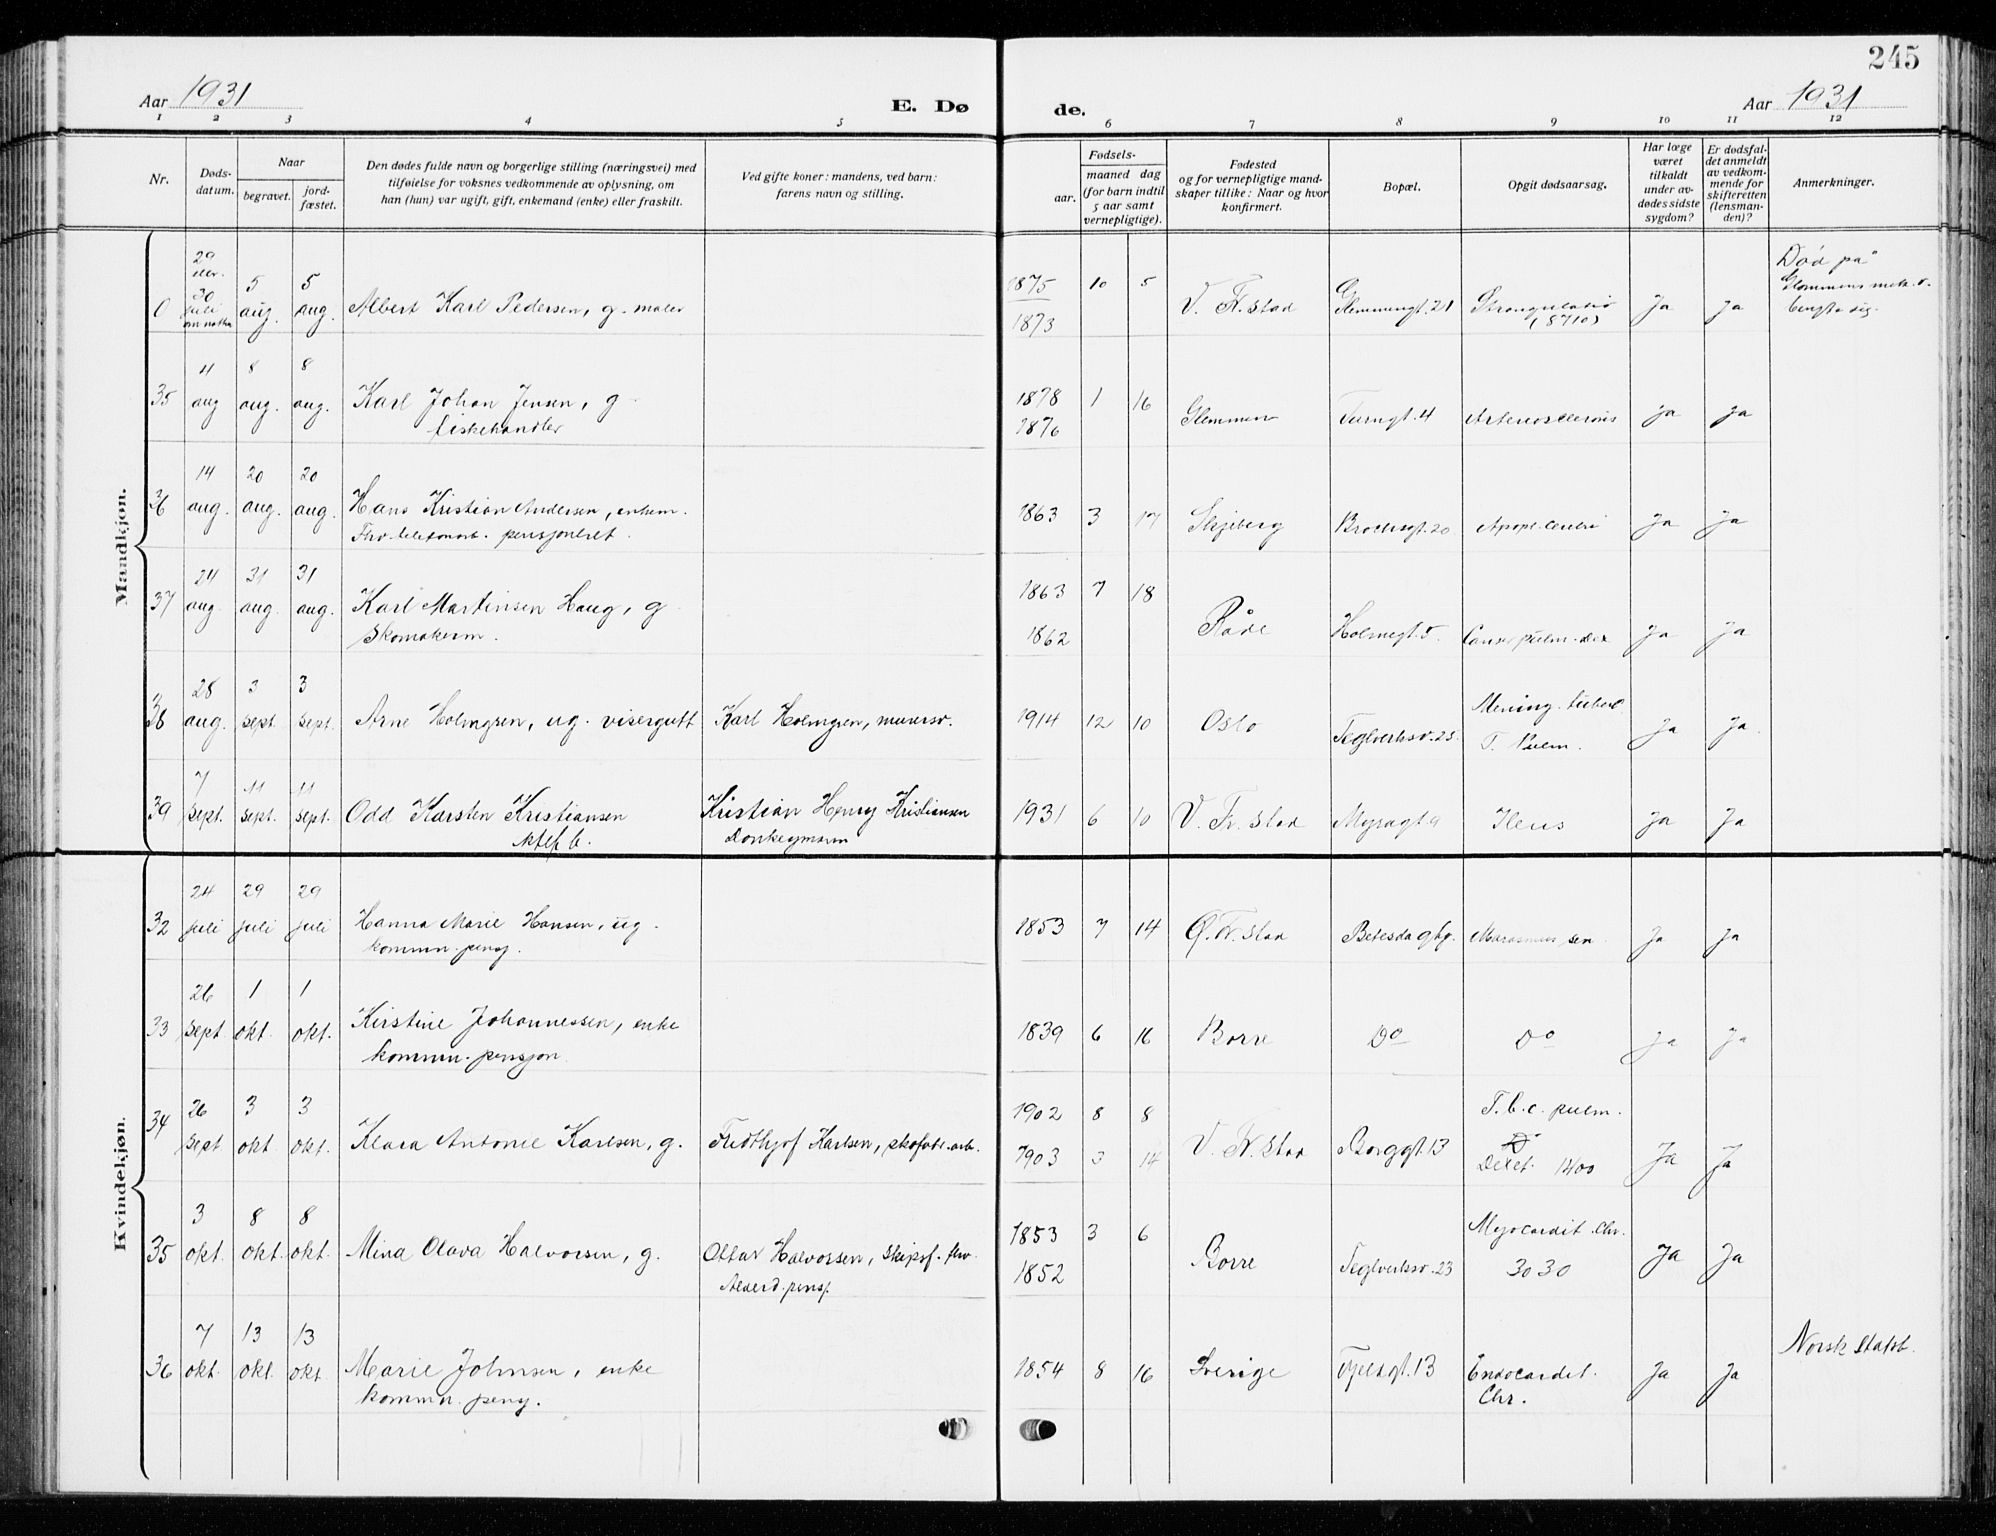 245
Aar 1931 E. Dø de. Aar 1931
1 2 3 4 5 6 7 8 9 10 11 12
Nr.
Døds-
datum.
Naar
begravet.
jord-
fæstet.
Den dødes fulde navn og borgerlige stilling (næringsvei) med
tilføielse for voksnes vedkommende av oplysning, om
han (hun) var ugift, gift, enkemand (enke) eller fraskilt.
Ved gifte koner: mandens, ved barn:
farens navn og stilling.
Fødsels-
aar.
maaned dag
(for barn indtil
5 aar samt
vernepligtige).
Fødested
og for vernepligtige mand-
skaper tillike: Naar og hvor
konfirmert.
Bopæl.
Opgit dødsaarsag.
Har læge
været
tilkaldt
under av-
dødes sidste
sygdom?
Er dødsfal-
det anmeldt
av vedkom-
mende for
skifteretten
(lensman-
den)?
Anmerkninger.
Mandkjøn.
0 29 30 juli 5 aug. 5 aug. Albert Karl Pedersen, g. maler 1875 10 5 V. Fr.stad Glemmengt. 21 Strangulatio Ja Ja Død på
1873 (8710) Glommens mek. v.
35 4 aug 8 aug. 8 aug. Karl Johan Jensen, g 1878 1 16 Glemmen Turngt. 4 Arteriosclerosis ja ja
fiskehandler 1876
36 14 aug. 20 aug. 20 aug. Hans Kristian Andersen, enkem. 1863 3 17 Skjeberg Brochsgt. 20 Apopl. cerebri Ja Ja
Fhv. telefonarb. pensjonert.
37 24 aug. 31 aug. 31 aug. Karl Martinsen Haug, g 1863 7 18 Råde Holmegt. 5. Cancer pulm. dex Ja Ja
Skomakerm. 1862
38 28 aug. 3 sept. 3 sept. Arne Holmgren, ug. visergutt Karl Holmgren, murersv. 1914 12 10 Oslo Teglverksv. 25 Mening. tuberc Ja Ja
T. Pulm.
39 7 sept. 11 sept. 11 sept. Odd Karsten Kristiansen Kristian Henry Kristiansen 1931 6 10 V. Fr. stad Myragt 9 Ileus Ja Ja
ektef b. Donkeymann
Kvindekjøn.
32 24 juli 29 juli 29 juli Hanna Marie Hansen, ug. 1853 7 14 Ø. Fr. stad Betesda Marasmus sen. Ja Ja
kommn. pensj.
33 26 sept. 1 okt. 1 okt. Kirstine Johannessen, enke 1839 6 16 Borre Do Do ja ja
kommn. pensjon
34 26 sept 3 okt. 3 okt. Klara Antonie Karlsen, g. Fridthjof Karlsen, skofabr. arb. 1902 8 8 V. Fr. stad Borggt. 13 T.b.c. pulm. Ja Ja
1903 3 14 Dexet. 1400
35 3 okt. 8 okt. 8 okt. Mina Olava Halvorsen, g. Ottar Halvorsen, skipsf. fhv. 1853 3 6 Borre Teglverksv. 23 Myocardit. chr. Ja Ja
Alderd. pensj. 1852 3030
36 7 okt. 13 okt. 13 okt Marie Johnsen, enke 1854 8 16 Sverige Fjeldgt. 13 Endocardit. Ja Ja Norsk statsb.
kommn. pensj. Chr.